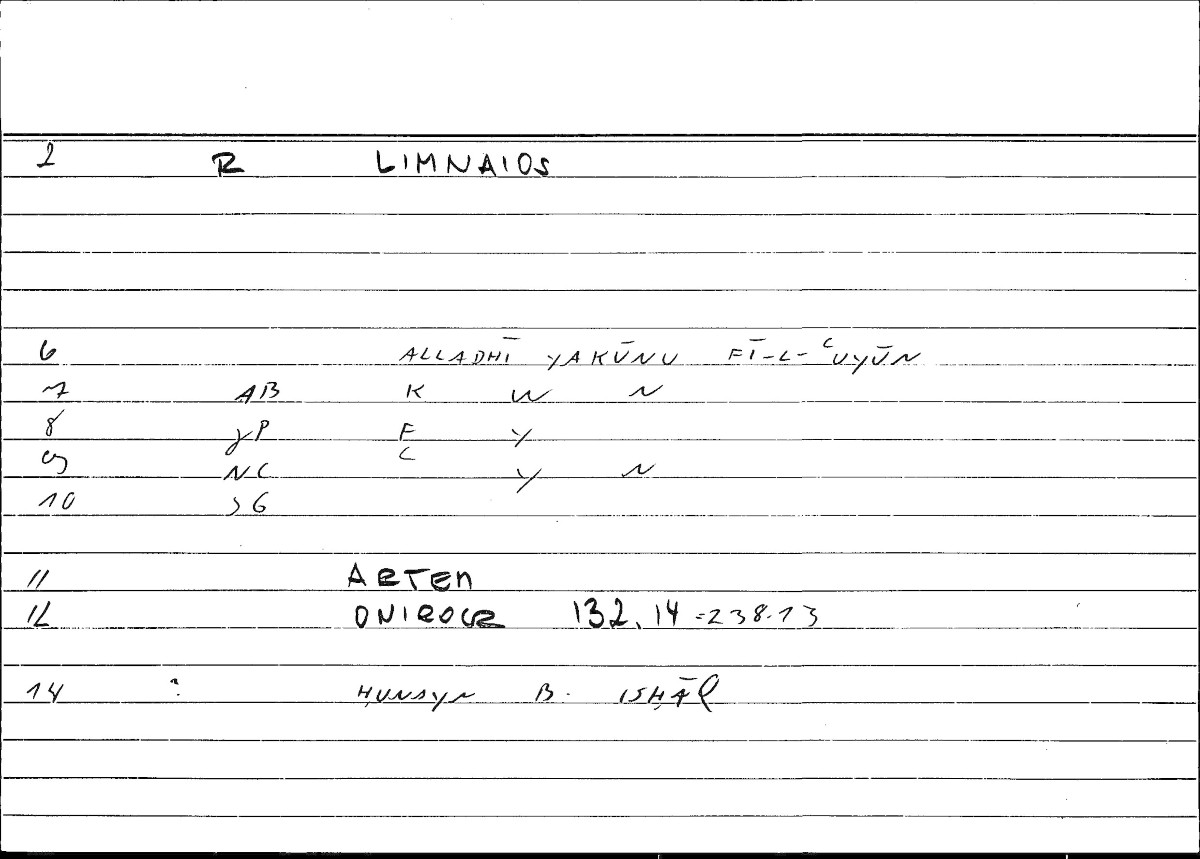 2 R LIMNAIOS
6 ALLADHĪ YAKŪNU FĪ-L-ʿUYŪN
7 AB K W N
8 γP F Y
9 NC ʿ Y N
10 >G
11 ARTEM
12 ONIROCR 132.14 =238.13
14 ? ḤUNAYN B. ISḤĀQ